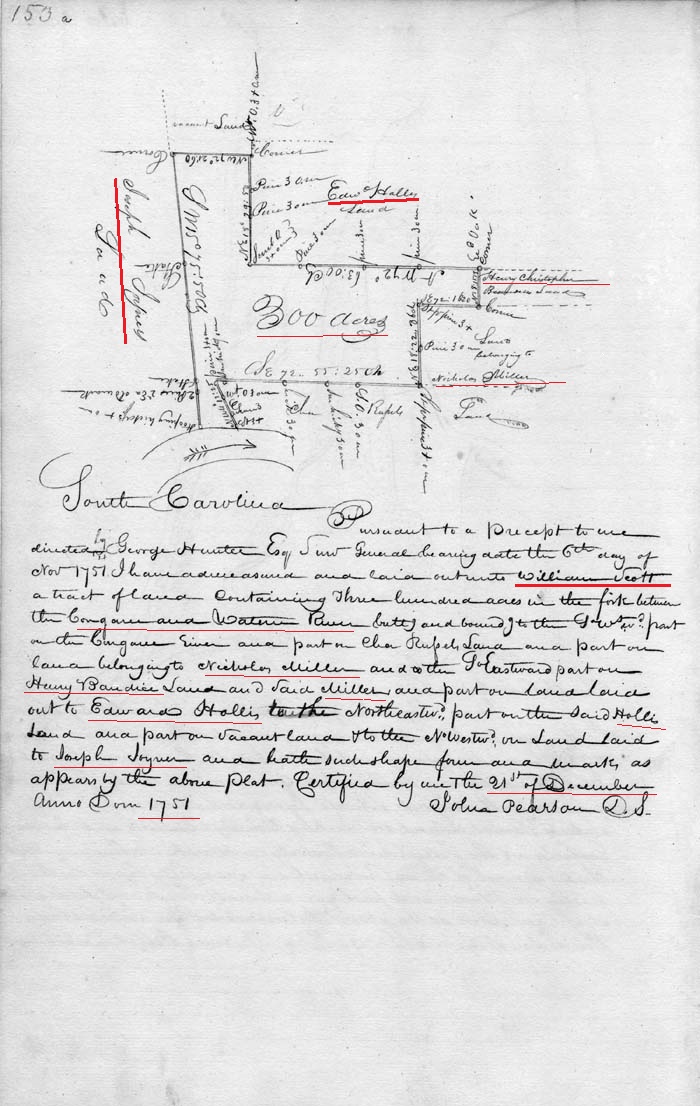 153 a
vacant Land
Corner
Corner
NW 72° 21:60
Pine 3 on
Pine 3 on
Edwd Hollis
Land
Joseph Joyner
Land
Stake
SW 15° 75:50 Ch
NE 15° 29:50
Pine 3 on
pine 3 on
pine 3 on
NW 72° 63:00 Ch
Corner
Henry Christopher
Land
Corner
300 acres
NE 72:
Pine 3 on
Land
belonging to
Nicholas Miller
Land
NE 15° 22:
SE 72 - 55:25 Ch
Stake
Cha
Rufels
S.O. 3 on
South Carolina
Pursuant to a Precept to me
directed by George Hunter Esqr Surv General bearing date the 6th day of
Nov 1751 I have admeasured and laid out unto William Scott
a tract of land Containing Three hundred acres in the fork between
the Congaree and Wateree River butt and bound to the So Westwd part
on the Congaree River and part on Cha Rufels Land and part on
land belonging to Nicholas Miller and to the So Eastward part on
Henry Land and Said Miller, and part on land laid
out to Edward Hollis to the Northeastwd, part on the Said Hollis
Land and part on Vacant land & to the No Westwd, on Land laid
to Joseph Joyner and hath such shape form and marks as
appears by the above Plat. Certified by me the 21st of December
Anno Dom 1751
John Pearson D. S.